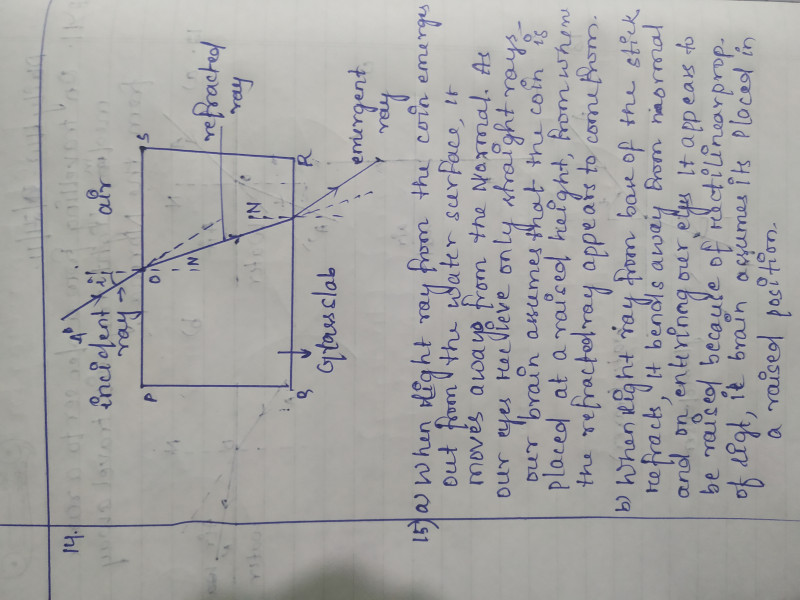 14.
A
incident
ray
i
air
P
O
S
N
refracted
ray
N
Q
R
Glass slab
emergent
ray
15) a) When light ray from the coin emerges
out from the water surface, it
moves away from the Normal. As
our eyes recieve only straight rays-
our brain assumes that the coin is
placed at a raised height, from where
the refracted ray appears to come from.
b) When light ray from base of the stick
refracts, it bends away from normal
and on entering our eyes it appears to
be raised because of rectilinear prop.
of ligt, it brain assumes its placed in
a raised position.